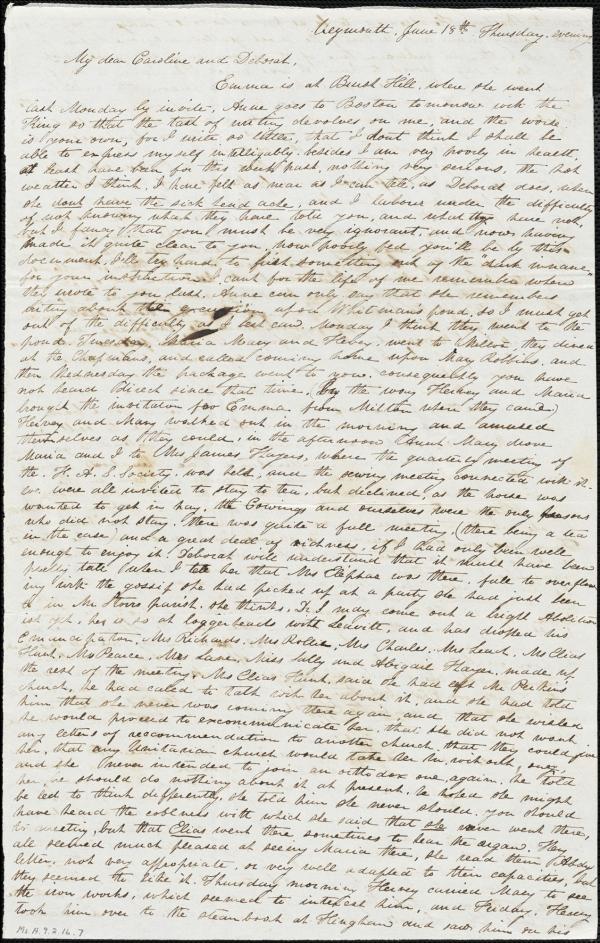 Weymouth, June 18th Thursday, evening
My dear Caroline and Deborah,
Emma is at Brush Hill, where she went
last Monday by invite, Anne goes to Boston tomorrow with the
King so that the task of writing devolves on me, and the worse
is your own, for I write so little, that I dont think I shall be
able to express myself intelligibly, besides I am very poorly in health,
at least have been for this week past, nothing very serious, the hot
weather I think. I have felt as near as I can tell, as Deborah does, when
she dont have the sick head ache, and I labour under the difficulty
of not knowing what they have told you, and what they have not,
but I fancy that you must be very ignorant, and now having
made it quite clear to you, how poorly fed you'll be by this
document, I'll try hard to fish something out of the "dark inane"
for your instruction. I cant for the life of me remember where
they wrote to you last. Anne can only say that she remembers
writing about the excursion upon Whitmans pond, so I must get
out of the difficulty as I best can. Monday I think they went to the
pond. Tuesday Maria Mary and Hervey went to Milton, they dined
at the Chapmans, and called coming home upon Mary Robbins, and
then Wednesday the package went to you, consequently you have
not heard direct since that time. (by the way Hervey and Maria
brought the invitation for Emma, from Milton when they came)
Hervey and Mary walked out in the morning and amused
themselves as they could, in the afternoon Aunt Mary drove
Maria and I to Mrs James Hayers, where the quarterly meeting of
the F. A. S. Society, was held, and the sewing meeting connected with it.
we were all invited to stay to tea, but declined, as the horse was
wanted to get in hay, the Cowings and ourselves were the only persons
who did not stay. There was quite a full meeting, (there being a tea
in the case) and a great deal of richness, if I had only been well
enough to enjoy it. Deborah will understand that it must have been
pretty tall when I tell her that Mrs Eliphaz was there, full to overflow
ing with the gossip she had picked up at a party she had just been
to in Mr parish. she thinks, D. L may come out a bright Abolition
ist yet, he is so at loggerheads with Leavitt, and has dropped his
Emancipator. Mrs Richards, Mrs Rollie, Mrs Charles, Mrs Leach, Mrs Elias
Hunt, Mrs Pearce, Mrs Lane, Miss Sally and Abigail Hayer, made up
the rest of the meeting. Mrs Elias Hunt, said she had left Mr Perkins
church, he had called to talk with her about it, and she had told
him that she never was coming there again and that she wished
he would proceed to excommunicate her, that she did not want
any letters of reccommendation to another church, that they could give
her, that any Unitarian church would take her in, without, one,
and she never intended to join an orthodox one, again. he told
her he should do nothing about it at present, he hoped she might
be led to think differently, she told him she never should. you should
have heard the coolness with which she said that she never went there,
to meeting, but that Elias went there sometimes to hear the organ. They
all seemed much pleased at seeing Maria there, she read them
letter, not very appropriate, or very well adapted to their capacities, but
they seemed to like it. Thursday morning Hervey carried Mary to see
the iron works, which seemed to interest him, and Friday, Hervey
took him over to the steamboat at Hingham and saw him on his
Ms. A. 9. 2. 14. 7